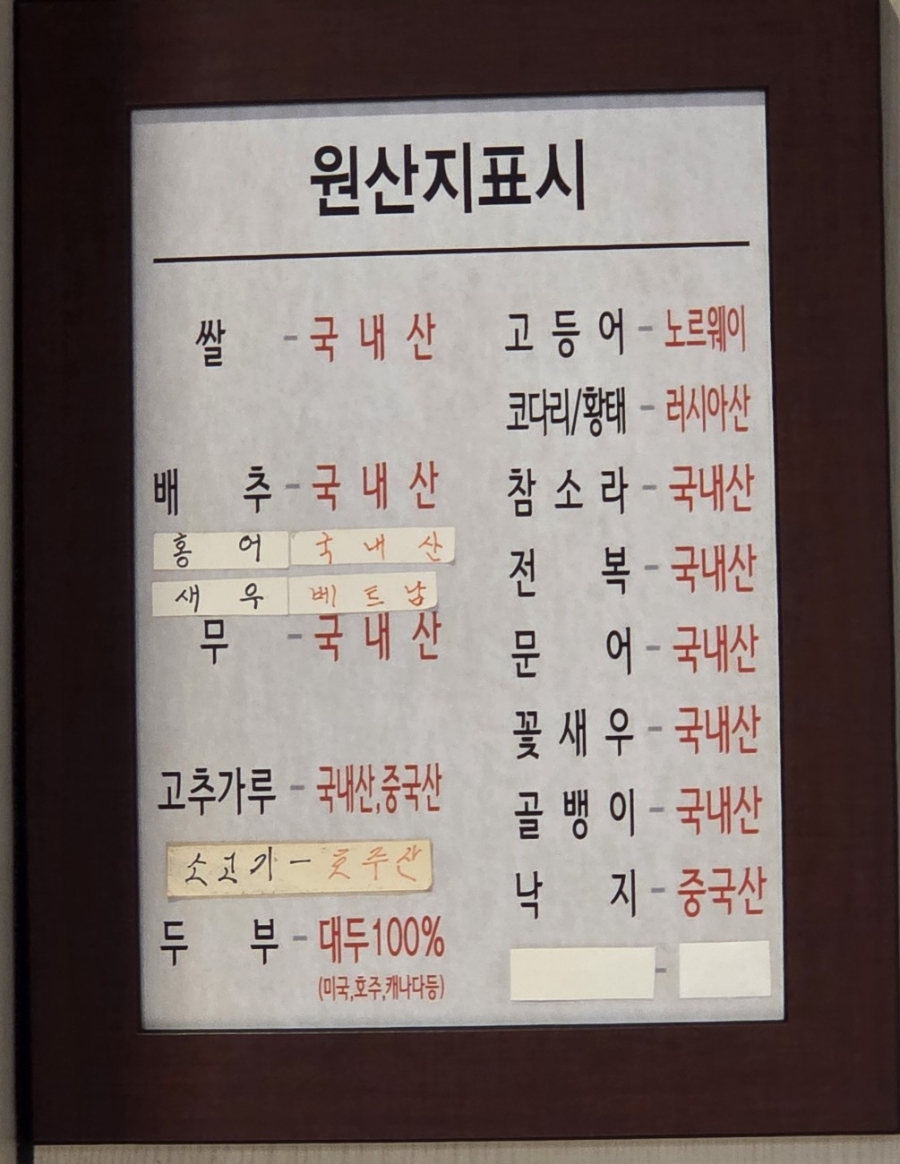 원산지표시
쌀 - 국내산
배추 - 국내산
홍어 국내산
새우 베트남
무 - 국내산
고추가루 - 국내산,중국산
소고기 - 호주산
두부 - 대두100%
(미국,호주,캐나다등)
고등어 - 노르웨이
코다리/황태 - 러시아산
참소라 - 국내산
전복 - 국내산
문어 - 국내산
꽃새우 - 국내산
골뱅이 - 국내산
낙지 - 중국산
-